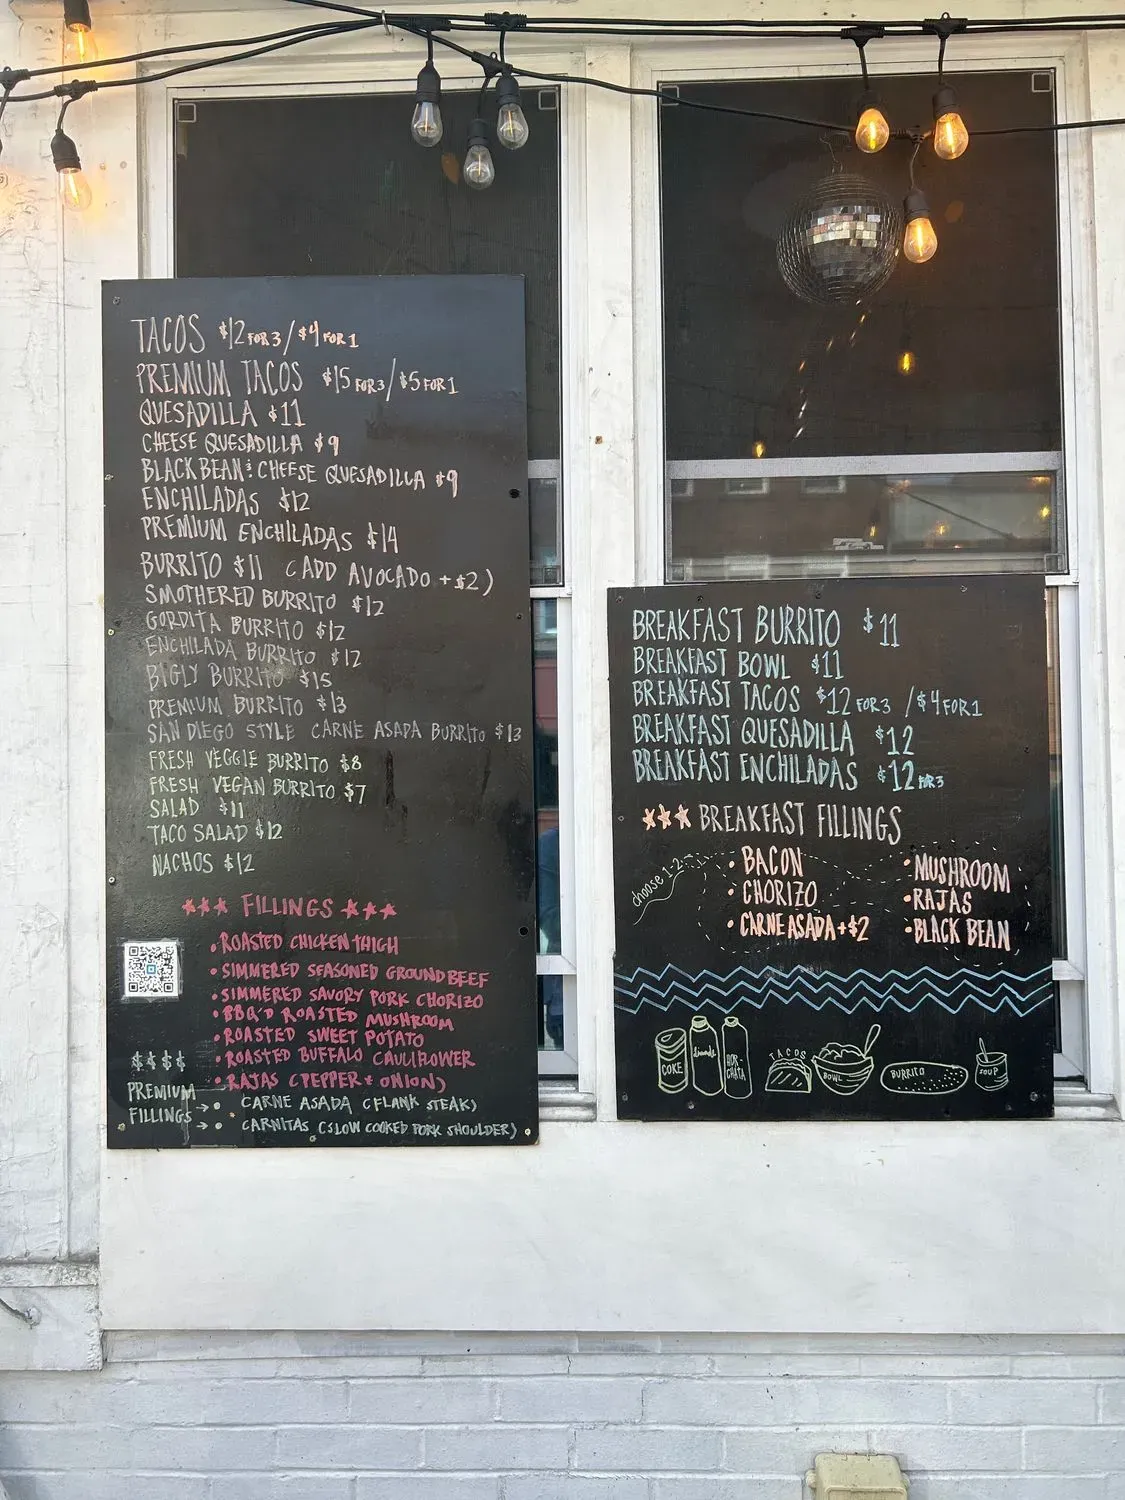 TACOS $12 FOR 3 / $4 FOR 1
PREMIUM TACOS $15 FOR 3 / $5 FOR 1
QUESADILLA $11
CHEESE QUESADILLA $9
BLACK BEAN & CHEESE QUESADILLA $9
ENCHILADAS $12
PREMIUM ENCHILADAS $14
BURRITO $11 (ADD AVOCADO +$2)
SMOTHERED BURRITO $12
GORDITA BURRITO $12
ENCHILADA BURRITO $12
BIGLY BURRITO $15
PREMIUM BURRITO $13
SAN DIEGO STYLE CARNE ASADA BURRITO $13
FRESH VEGGIE BURRITO $8
FRESH VEGAN BURRITO $7
SALAD $11
TACO SALAD $12
NACHOS $12
★★★ FILLINGS ★★★
• ROASTED CHICKEN THIGH
• SIMMERED SEASONED GROUND BEEF
• SIMMERED SAVORY PORK CHORIZO
• BBQ'D ROASTED MUSHROOM
• ROASTED SWEET POTATO
• ROASTED BUFFALO CAULIFLOWER
• RAJAS (PEPPER + ONION)
$$$$
PREMIUM
FILLINGS
→ • CARNE ASADA (FLANK STEAK)
→ • CARNITAS (SLOW COOKED PORK SHOULDER)
BREAKFAST BURRITO $11
BREAKFAST BOWL $11
BREAKFAST TACOS $12 FOR 3 / $4 FOR 1
BREAKFAST QUESADILLA $12
BREAKFAST ENCHILADAS $12 FOR 3
★★★ BREAKFAST FILLINGS
choose 1-2
• BACON
• CHORIZO
• CARNE ASADA +$2
• MUSHROOM
• RAJAS
• BLACK BEAN
COKE
HOR-
CHATA
TACOS
BOWL
BURRITO
SOUP